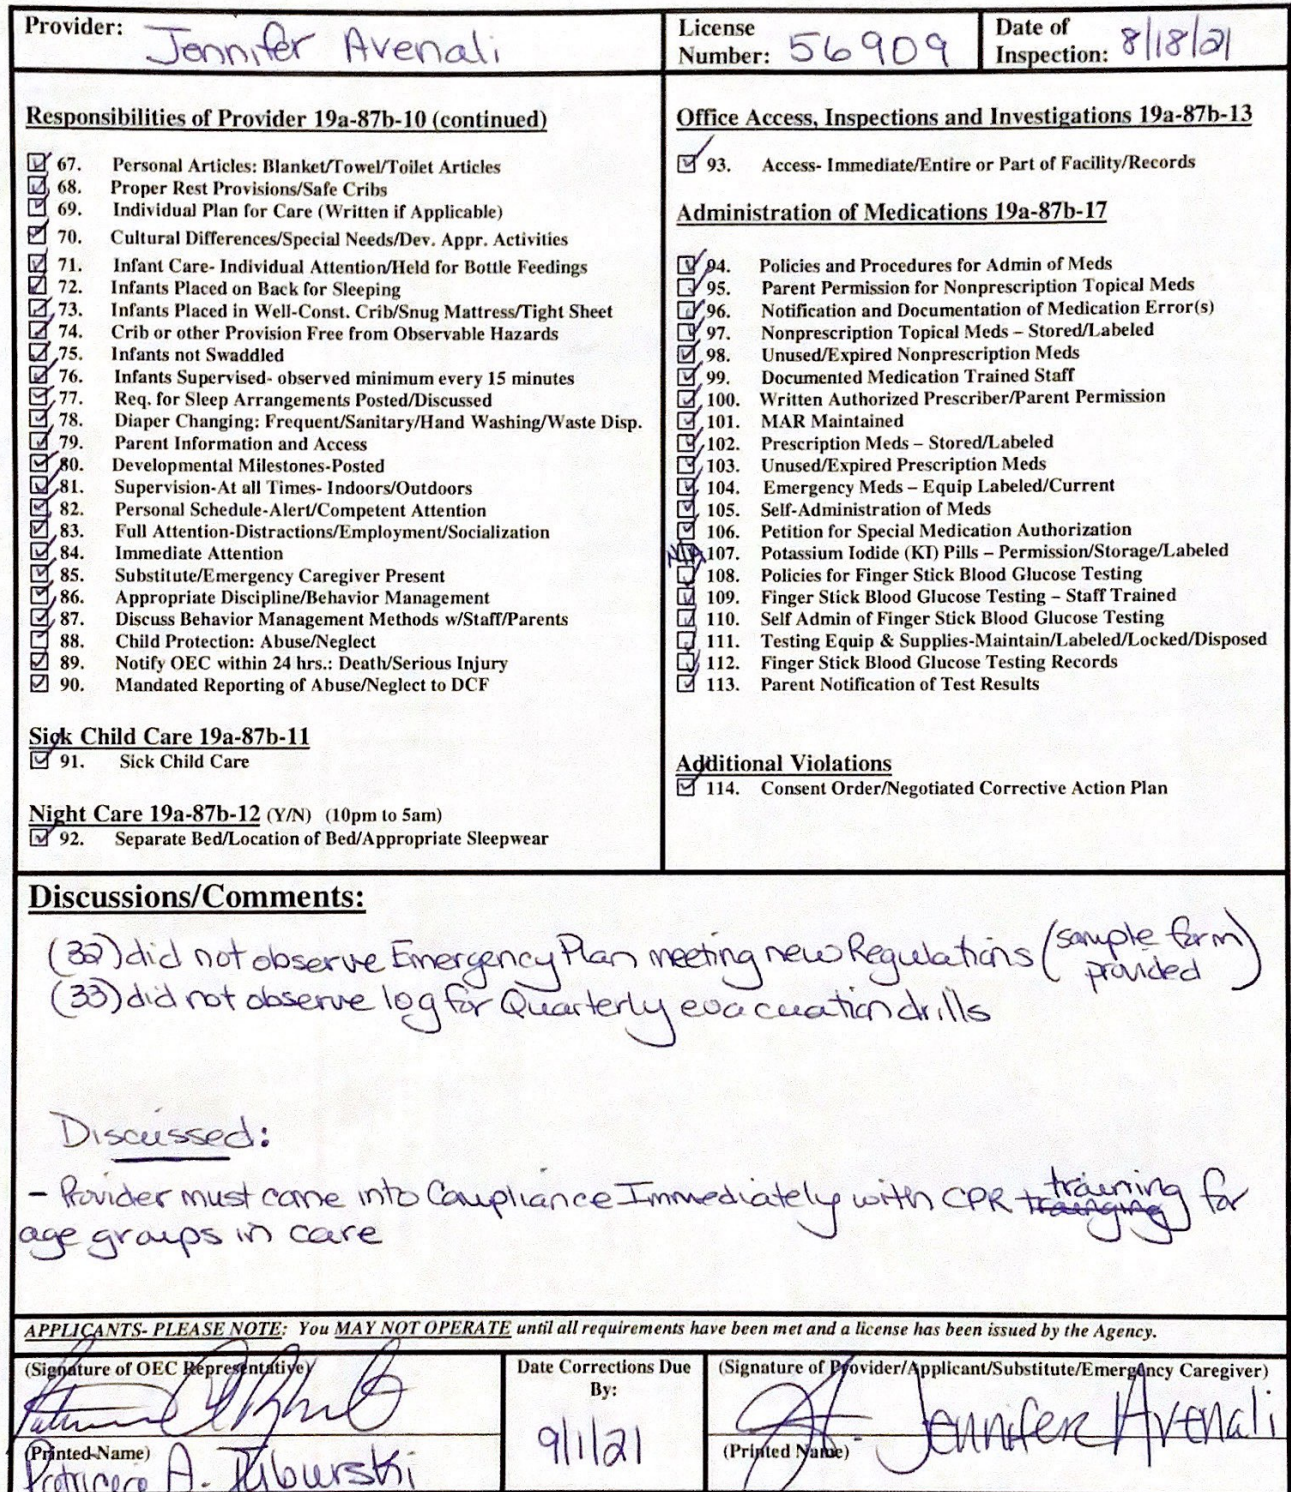 Provider: Jennifer Avenali
License Number: 56909
Date of Inspection: 8/18/21
Responsibilities of Provider 19a-87b-10 (continued)
67. Personal Articles: Blanket/Towel/Toilet Articles
68. Proper Rest Provisions/Safe Cribs
69. Individual Plan for Care (Written if Applicable)
70. Cultural Differences/Special Needs/Dev. Appr. Activities
71. Infant Care- Individual Attention/Held for Bottle Feedings
72. Infants Placed on Back for Sleeping
73. Infants Placed in Well-Const. Crib/Snug Mattress/Tight Sheet
74. Crib or other Provision Free from Observable Hazards
75. Infants not Swaddled
76. Infants Supervised- observed minimum every 15 minutes
77. Req. for Sleep Arrangements Posted/Discussed
78. Diaper Changing: Frequent/Sanitary/Hand Washing/Waste Disp.
79. Parent Information and Access
80. Developmental Milestones-Posted
81. Supervision-At all Times- Indoors/Outdoors
82. Personal Schedule-Alert/Competent Attention
83. Full Attention-Distractions/Employment/Socialization
84. Immediate Attention
85. Substitute/Emergency Caregiver Present
86. Appropriate Discipline/Behavior Management
87. Discuss Behavior Management Methods w/Staff/Parents
88. Child Protection: Abuse/Neglect
89. Notify OEC within 24 hrs.: Death/Serious Injury
90. Mandated Reporting of Abuse/Neglect to DCF
Sick Child Care 19a-87b-11
91. Sick Child Care
Night Care 19a-87b-12 (Y/N) (10pm to 5am)
92. Separate Bed/Location of Bed/Appropriate Sleepwear
Office Access, Inspections and Investigations 19a-87b-13
93. Access- Immediate/Entire or Part of Facility/Records
Administration of Medications 19a-87b-17
94. Policies and Procedures for Admin of Meds
95. Parent Permission for Nonprescription Topical Meds
96. Notification and Documentation of Medication Error(s)
97. Nonprescription Topical Meds – Stored/Labeled
98. Unused/Expired Nonprescription Meds
99. Documented Medication Trained Staff
100. Written Authorized Prescriber/Parent Permission
101. MAR Maintained
102. Prescription Meds – Stored/Labeled
103. Unused/Expired Prescription Meds
104. Emergency Meds – Equip Labeled/Current
105. Self-Administration of Meds
106. Petition for Special Medication Authorization
N/A 107. Potassium Iodide (KI) Pills – Permission/Storage/Labeled
108. Policies for Finger Stick Blood Glucose Testing
109. Finger Stick Blood Glucose Testing – Staff Trained
110. Self Admin of Finger Stick Blood Glucose Testing
111. Testing Equip & Supplies-Maintain/Labeled/Locked/Disposed
112. Finger Stick Blood Glucose Testing Records
113. Parent Notification of Test Results
Additional Violations
114. Consent Order/Negotiated Corrective Action Plan
Discussions/Comments:
(32) did not observe Emergency Plan meeting new Regulations (sample form provided)
(33) did not observe log for Quarterly evacuation drills
Discussed:
- Provider must come into Compliance Immediately with CPR training for
age groups in care
APPLICANTS- PLEASE NOTE: You MAY NOT OPERATE until all requirements have been met and a license has been issued by the Agency.
(Signature of OEC Representative)
(Printed Name)
A.
Date Corrections Due
By:
9/1/21
(Signature of Provider/Applicant/Substitute/Emergency Caregiver)
Jennifer Avenali
(Printed Name)